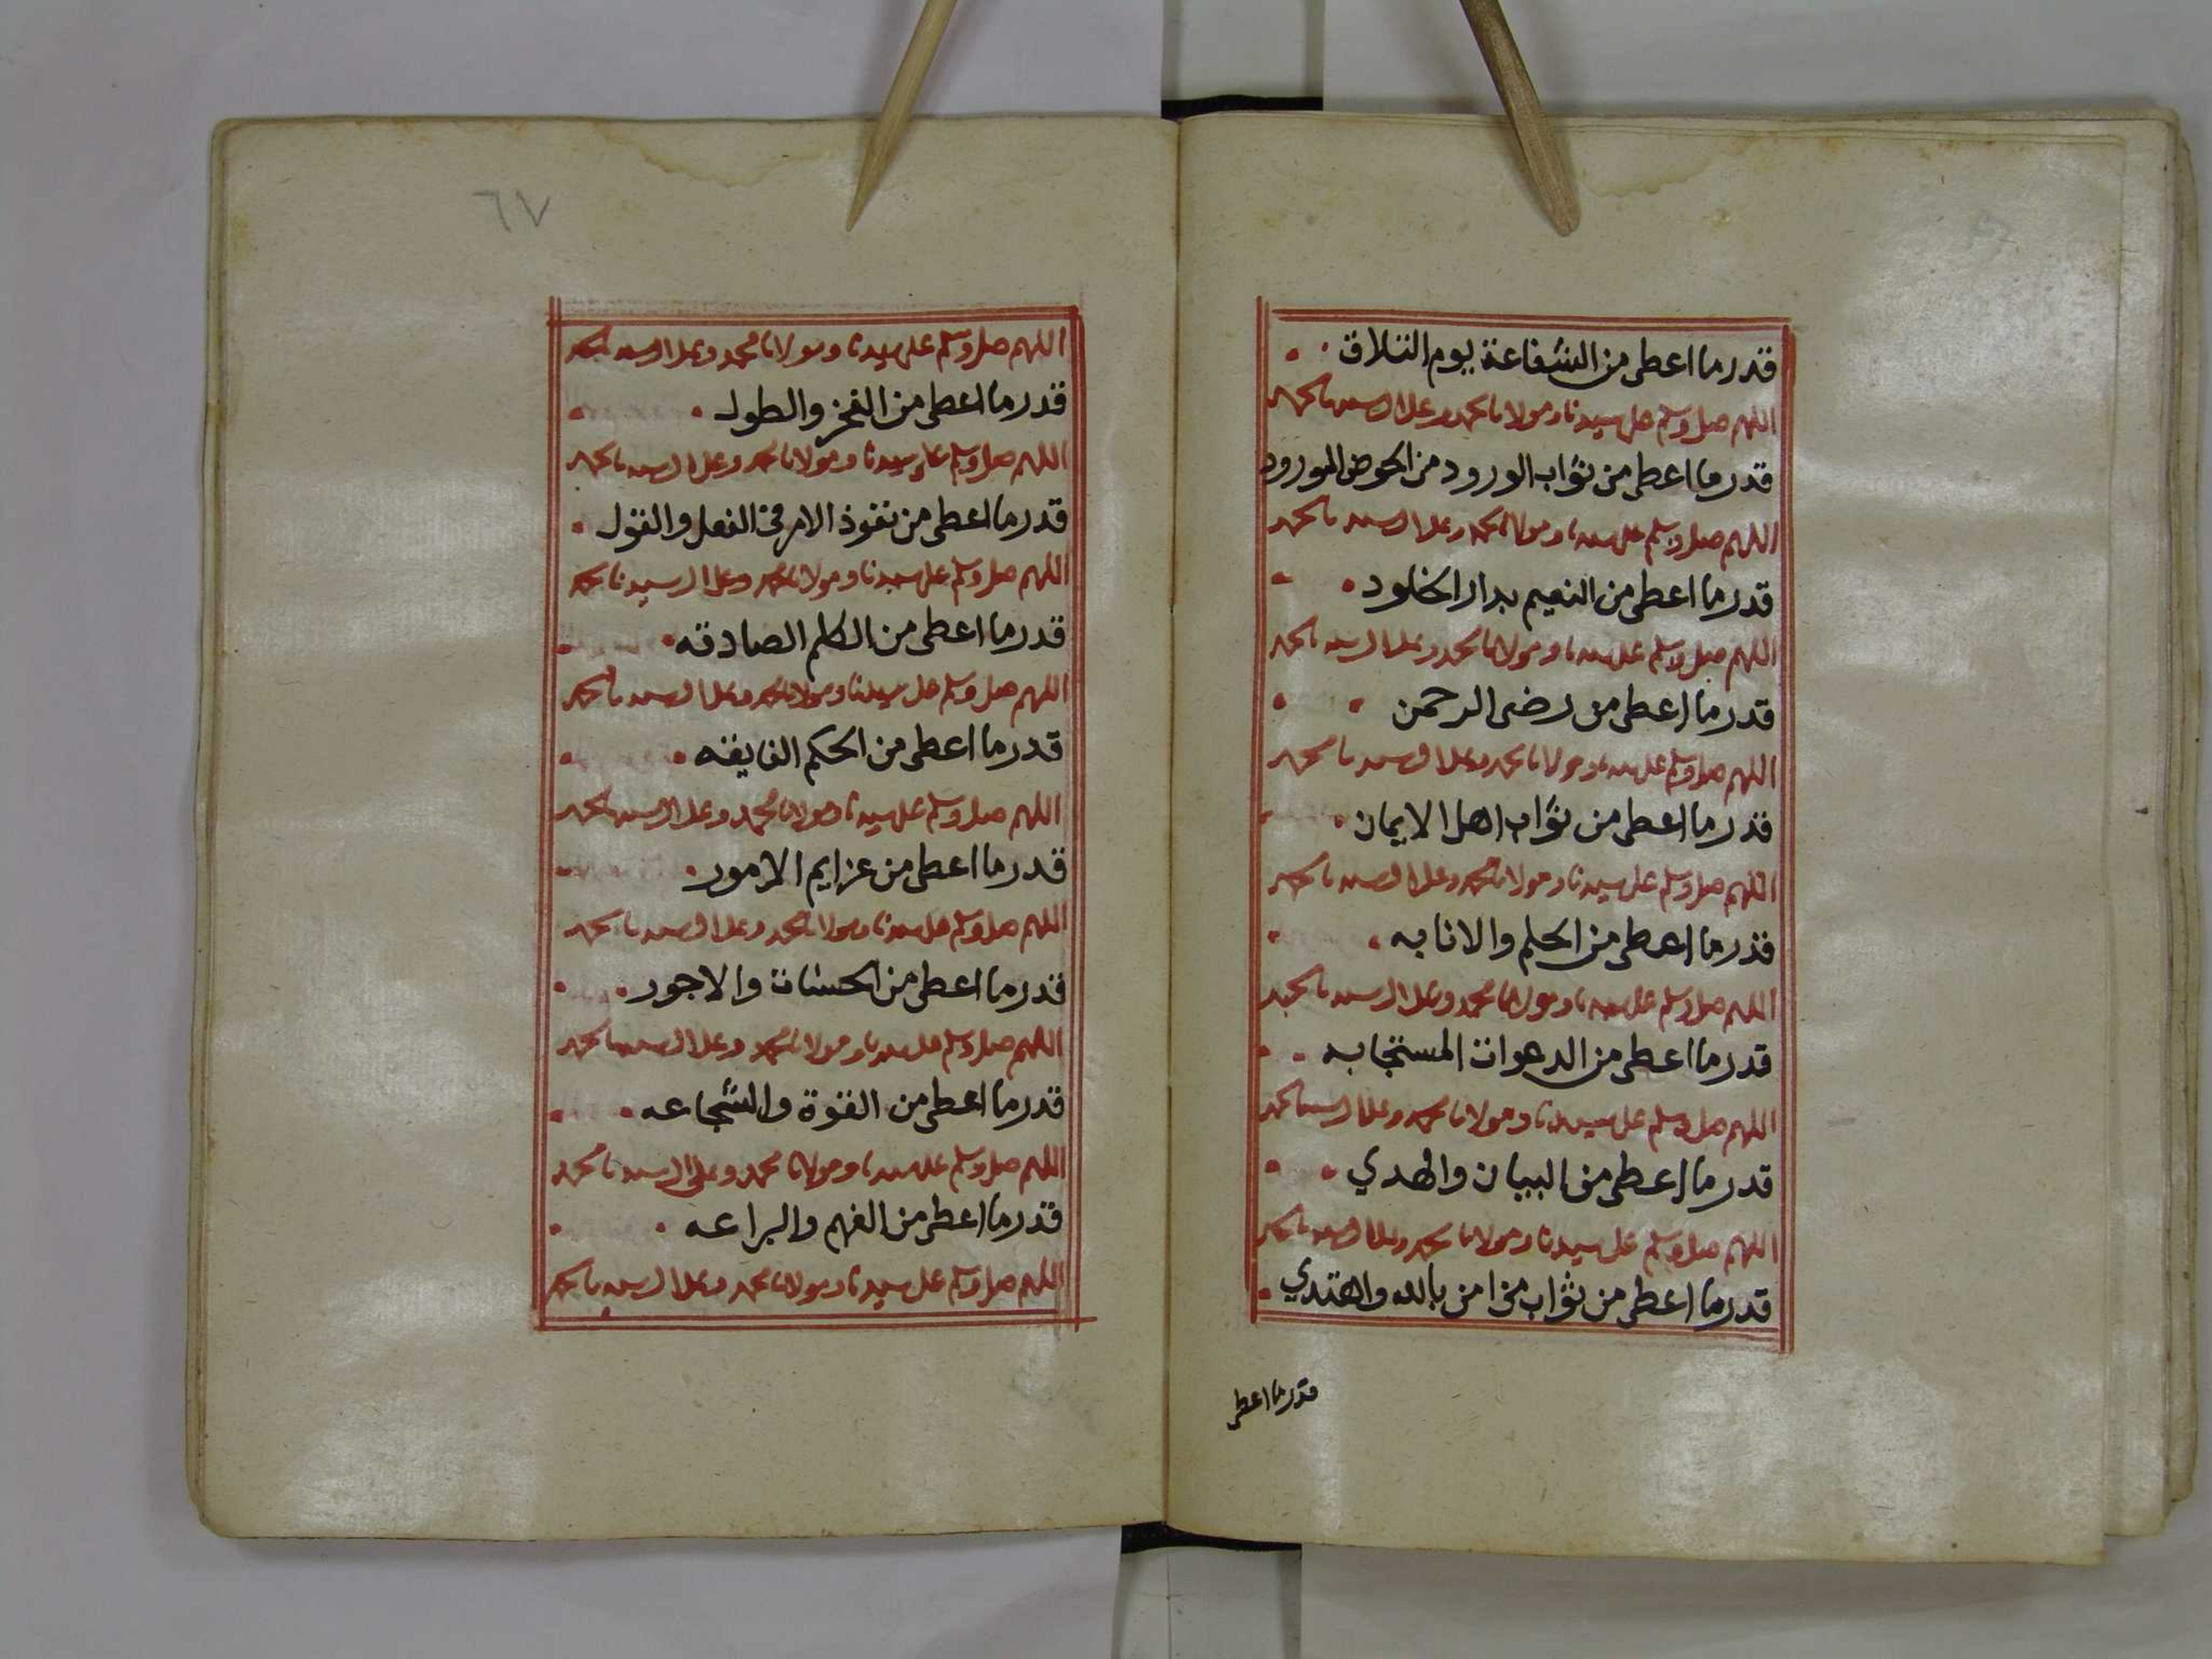 قدر ما اعطى من الشفاعة يوم التلاق
اللهم صل وسلم على سيدنا ومولانا محمد وعلى ال سيدنا محمد
قدر ما اعطى من ثواب الورود من الحوض المورود
اللهم صل وسلم على سيدنا ومولانا محمد وعلى ال سيدنا محمد
قدر ما اعطى من النعيم بدار الخلود
اللهم صل وسلم على سيدنا ومولانا محمد وعلى ال سيدنا محمد
قدر ما اعطى من رضى الرحمن
اللهم صل وسلم على سيدنا ومولانا محمد وعلى ال سيدنا محمد
قدر ما اعطى من ثواب اهل الايمان
اللهم صل وسلم على سيدنا ومولانا محمد وعلى ال سيدنا محمد
قدر ما اعطى من الحلم والانابه
اللهم صل وسلم على سيدنا ومولانا محمد وعلى ال سيدنا محمد
قدر ما اعطى من الدعوات المستجابه
اللهم صل وسلم على سيدنا ومولانا محمد وعلى ال سيدنا محمد
قدر ما اعطى من البيان والهدي
اللهم صل وسلم على سيدنا ومولانا محمد وعلى ال سيدنا محمد
قدر ما اعطى من ثواب من امن بالله واهتدي
قدر ما اعطى
٦٧
اللهم صل وسلم على سيدنا ومولانا محمد وعلى ال سيدنا محمد
قدر ما اعطى من الفخر والطول
اللهم صل وسلم على سيدنا ومولانا محمد وعلى ال سيدنا محمد
قدر ما اعطى من نفوذ الامر في الفعل والقول
اللهم صل وسلم على سيدنا ومولانا محمد وعلى ال سيدنا محمد
قدر ما اعطى من الكلم الصادقه
اللهم صل وسلم على سيدنا ومولانا محمد وعلى ال سيدنا محمد
قدر ما اعطى من الحكم الفايقه
اللهم صل وسلم على سيدنا ومولانا محمد وعلى ال سيدنا محمد
قدر ما اعطى من عزايم الامور
اللهم صل وسلم على سيدنا ومولانا محمد وعلى ال سيدنا محمد
قدر ما اعطى من الحسنات والاجور
اللهم صل وسلم على سيدنا ومولانا محمد وعلى ال سيدنا محمد
قدر ما اعطى من القوة والشجاعه
اللهم صل وسلم على سيدنا ومولانا محمد وعلى ال سيدنا محمد
قدر ما اعطى من الفهم والبراعه
اللهم صل وسلم على سيدنا ومولانا محمد وعلى ال سيدنا محمد